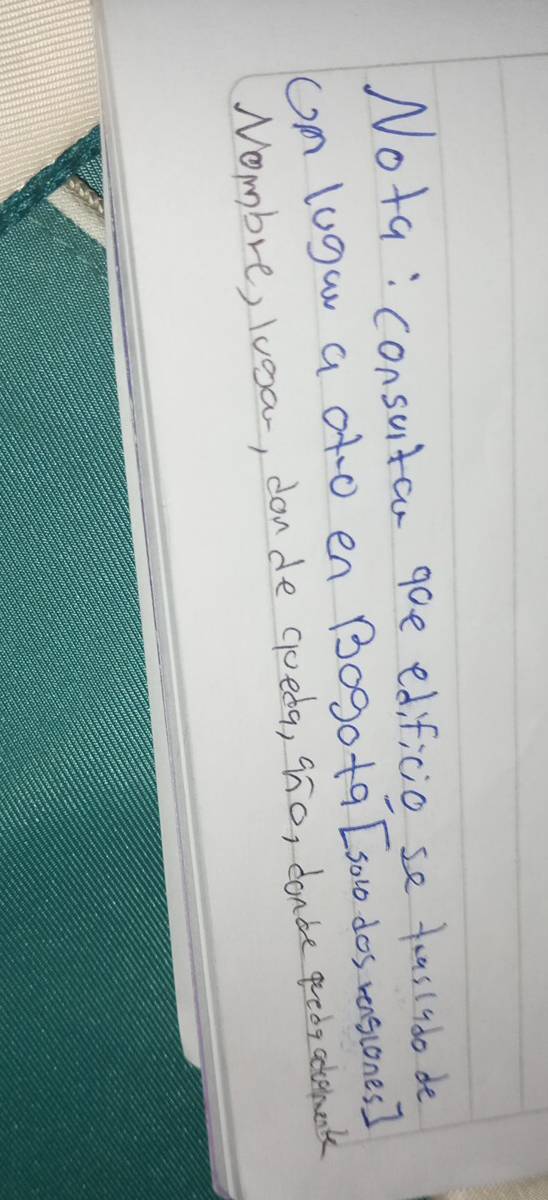 Nota: Consultar que edificio se traslado de
un lugar a otro en Bogotá [solo dos versiones]
Nombre, lugar, donde queda, año, donde queda actualmente